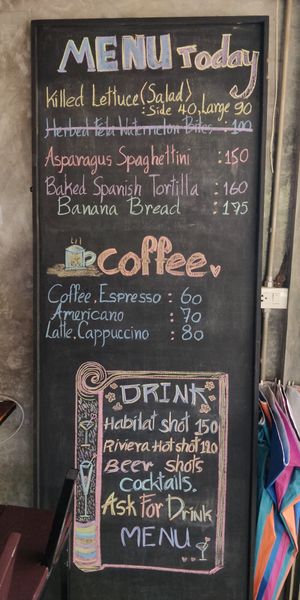 MENU Today
Killed Lettuce (Salad)
: Side 40, Large 90
Herbed Feta Watermelon Bites : 100
Asparagus Spaghettini : 150
Baked Spanish Tortilla : 160
Banana Bread : 175
Coffee
Coffee, Espresso : 60
Americano : 70
Latte, Cappuccino : 80
DRINK
Habilat shot 150
Riviera Hot shot 120
Beer shots
Cocktails.
Ask For Drink
MENU